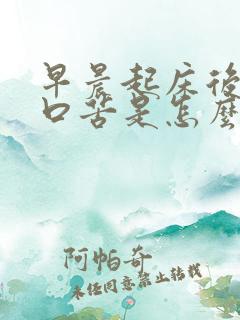 早晨起床後
口苦是怎麼
阿帕奇
未经同意禁止转载